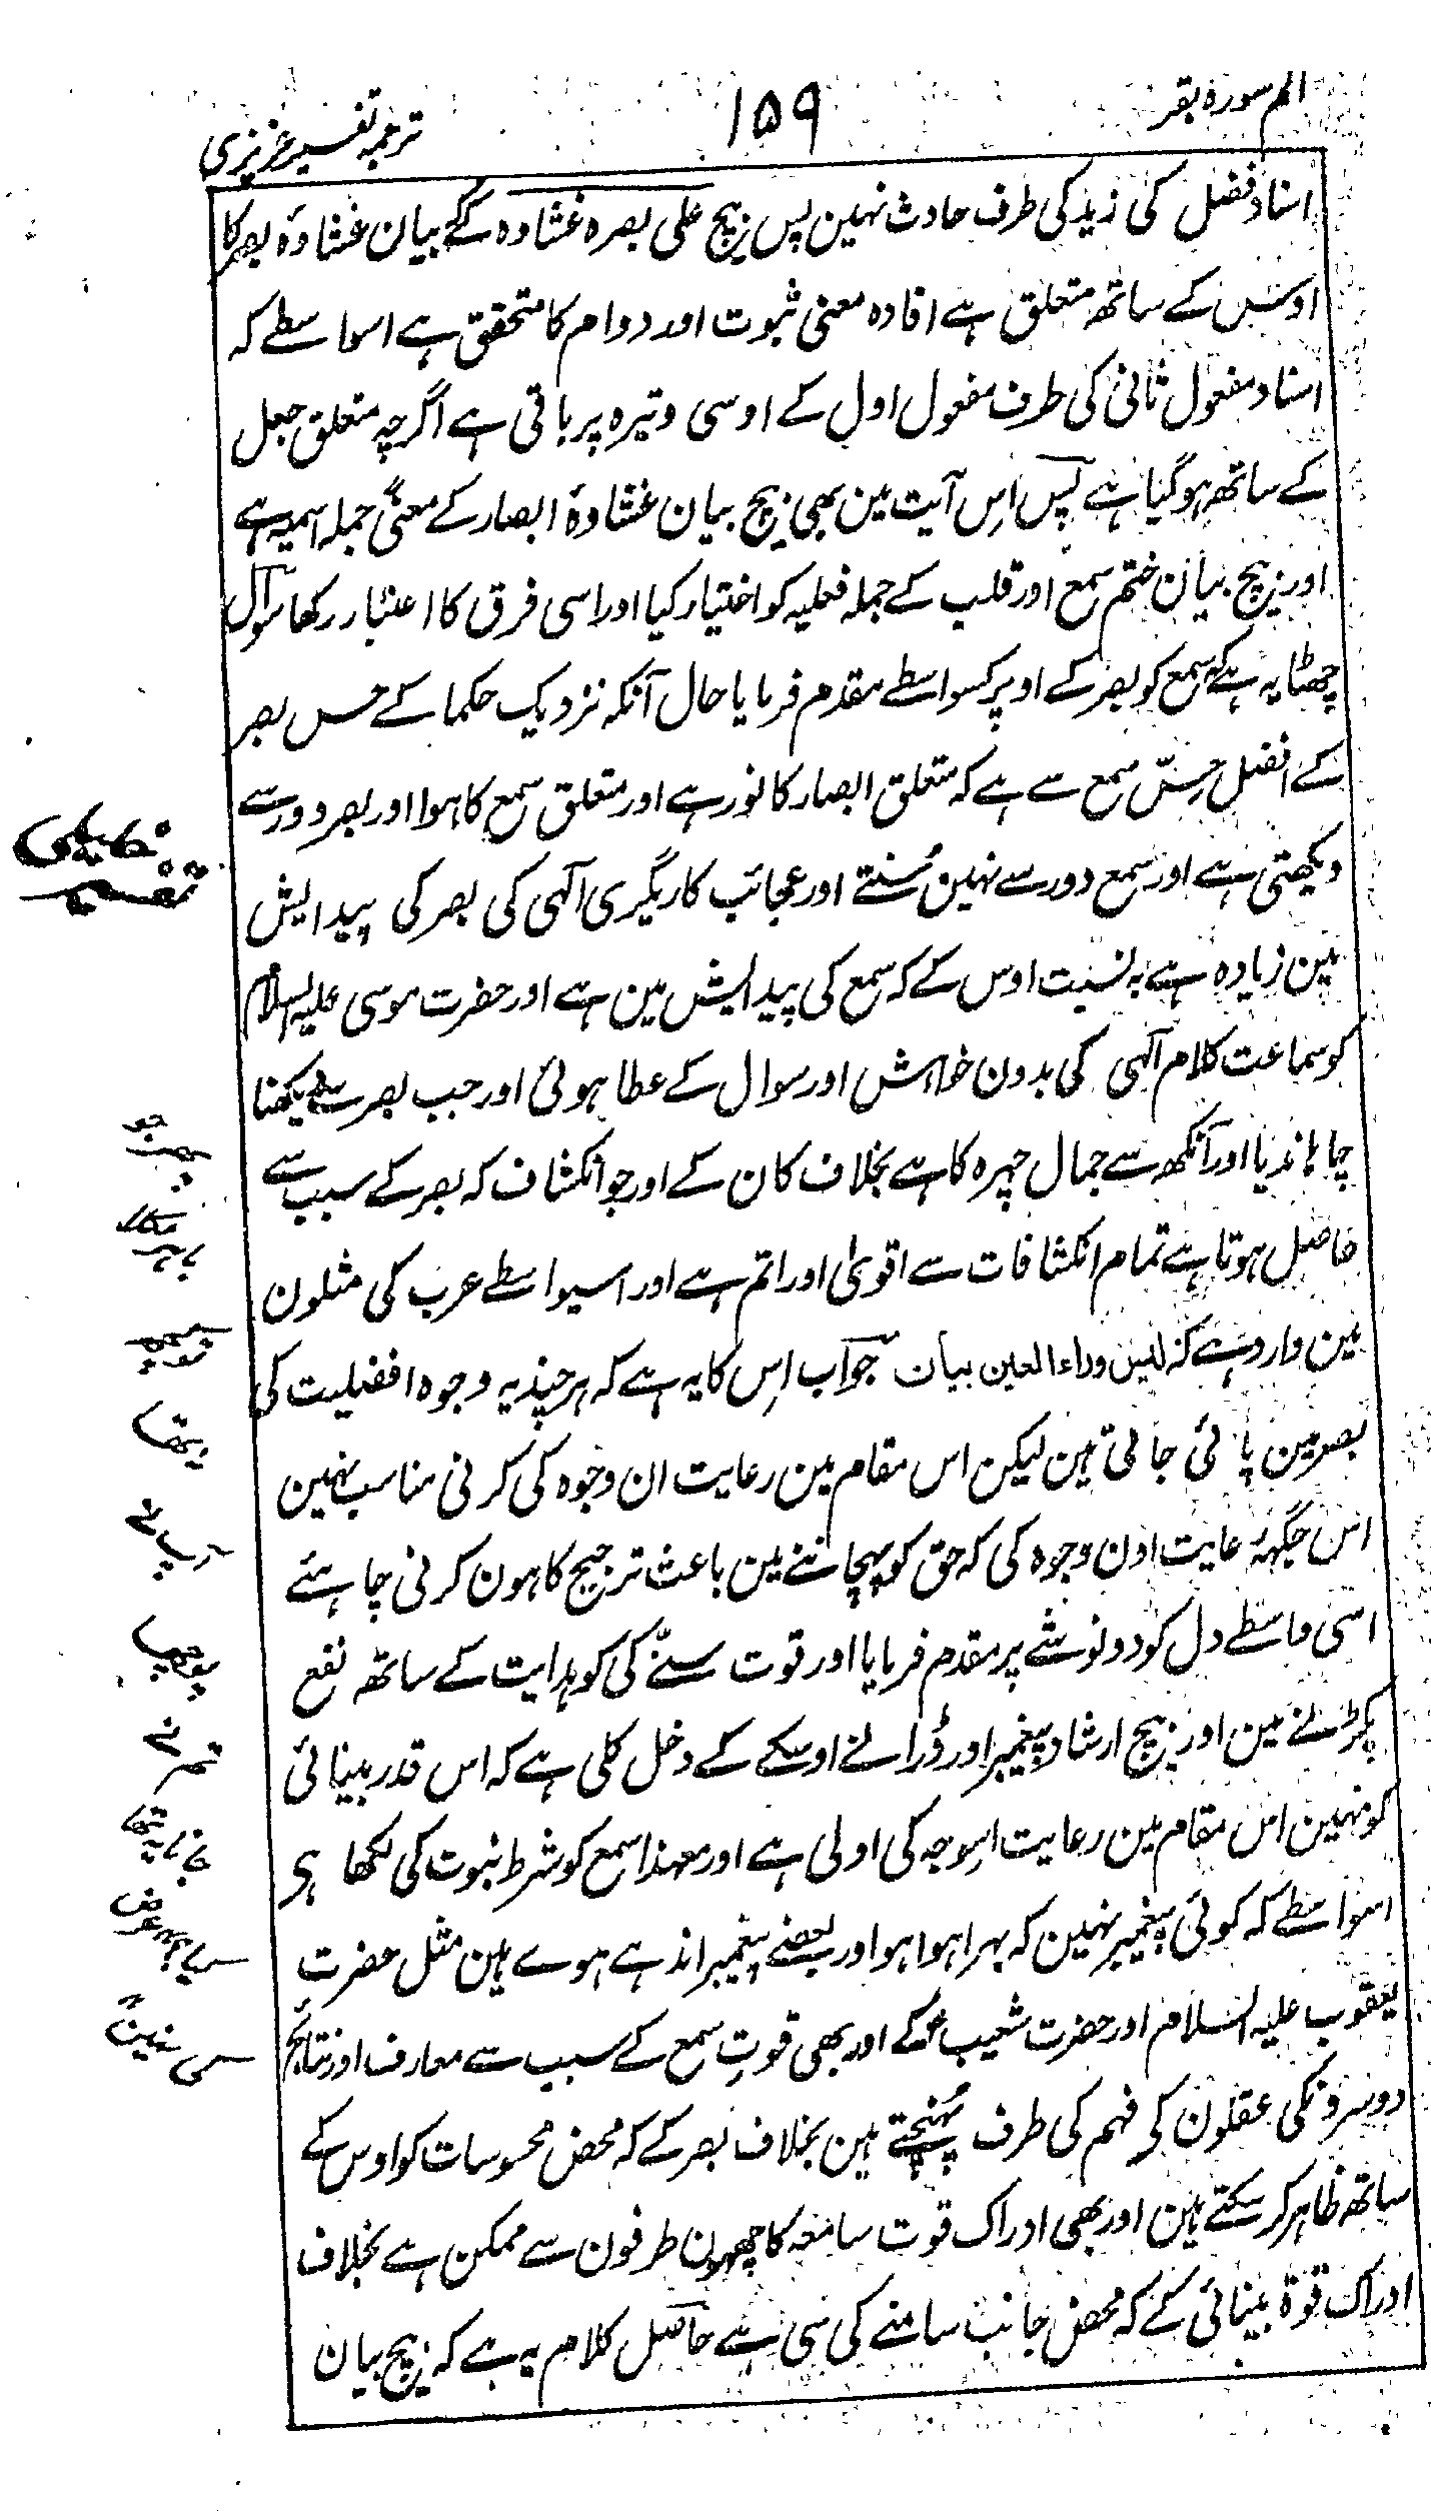 الم سورہ بقر
۱۵۹
ترجمہ تفسیر عزیزی
اسناد فضل کی زید کی طرف حادث نہین پس بیچ علی بصرہ غشاوہ کے بیان غشاوۂ بصر کا
اوس کے ساتھ متعلق ہے افادہ معنی ثبوت اور دوام کا متحقق ہے اسواسطے کہ
اسناد مفعول ثانی کی طرف مفعول اول کے اوسی وتیرہ پر باقی ہے اگرچہ متعلق جعل
کے ساتھ ہوگیا ہے پس اِس آیت مین بھی بیچ بیان غشاوۂ ابصار کے معنیً جملہ اسمیہ ہے
اور بیچ بیان ختم سمع اور قلب کے جملہ فعلیہ کو اختیار کیا اور اسی فرق کا اعتبار رکھا سوال
چھٹا یہ ہے کہ سمع کو بصر کے اوپر کسواسطے مقدم فرمایا حال آنکہ نزدیک حکما کے حس بصر
کے افضل حسّ سمع سے ہے کہ متعلق ابصار کا نور ہے اور متعلق سمع کا ہوا اور بصر دور سے
دیکھتی ہے اور سمع دور سے نہین سُنتے اور عجائب کاریگری الٰہی کی بصر کی پیدایش
مین زیادہ ہے بہ نسبت اوس کے کہ سمع کی پیدایش مین ہے اور حضرت موسی علیہ السلام
کو سماعت کلام الٰہی کی بدون خواہش اور سوال کے عطا ہوئی اور جب بصر سے دیکھنا
چاہا ندیا اور آنکھ سے جمال چہرہ کا ہے بخلاف کان کے اور جو انکشاف کہ بصر کے سبب سے
حاصل ہوتا ہے تمام انکشافات سے اقویٰ اور اتم ہے اور اسیواسطے عرب کی مثلون
مین وارد ہے کہ لیس وراء العین بیان جواب اِس کا یہ ہے کہ ہرچند یہ وجوہ افضلیت کی
بصر مین پائی جاتی ہین لیکن اس مقام مین رعایت ان وجوہ کی کرنی مناسب نہین
اس جگہہ رعایت اون وجوہ کی کہ حق کو پہچاننے مین باعث ترجیح کا ہون کرنی چاہئے
اسی واسطے دل کو دونو شے پر مقدم فرمایا اور قوت سنّے کی کو ہدایت کے ساتھ نفع
پکڑنے مین اور بیچ ارشاد پیغمبر اور ڈرانے اوسکے کے دخل کلی ہے کہ اس قدر بینائی
کو نہین اس مقام مین رعایت اسوجہ کی اولی ہے اور معہذا سمع کو شرط نبوت کی لکھا ہی
اسواسطے کہ کوئی پیغمبر نہین کہ بہرا ہوا ہو اور بعضے پیغمبر اندہے ہوے ہین مثل حضرت
یعقوب علیہ السلام اور حضرت شعیب ع کے اور بھی قوتِ سمع کے سبب سے معارف اور نتایج
دوسرونکی عقلون کی فہم کی طرف پہُنچتے ہین بخلاف بصر کے کہ محض محسوسات کو اوس کے
ساتھ ظاہر کرسکتے ہین اور بھی ادراک قوت سامعہ کا چھہون طرفون سے ممکن ہے بخلاف
ادراک قوۃ بینائی کے کہ محض جانب سامنے کی سی ہے حاصل کلام یہ ہے کہ بیچ بیان